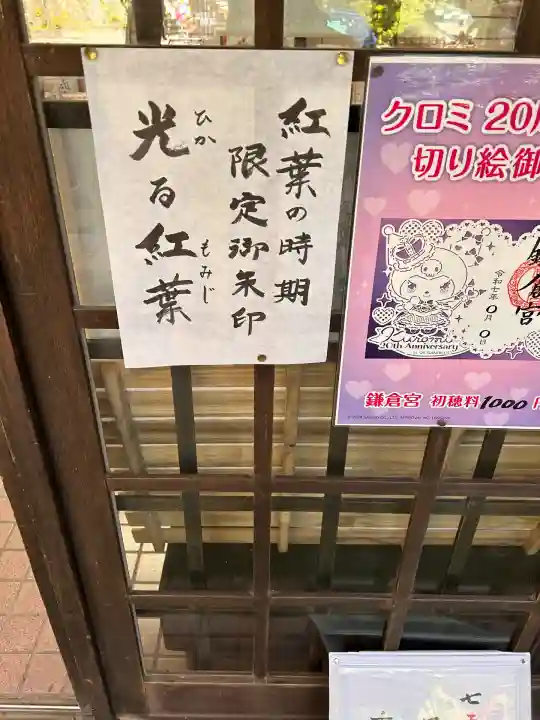 紅葉の時期
限定御朱印
光る紅葉
ひか
もみじ
クロミ 20
切り絵御
令和七年〇月〇日
Kuromi
20th Anniversary
鎌倉宮 初穂料1000円
七